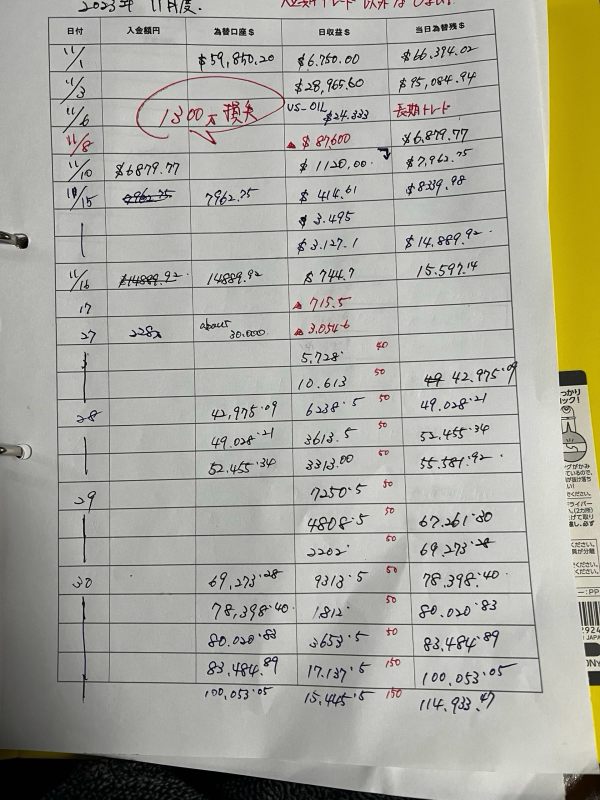 2023年 11月度.
日付 入金額円 為替口座$ 日収益$ 当日為替残$
11/1 $59,850.20 $6.750.00 $66.394.02
11/3 $28,965.60 $95,084.94
11/6 US-OIL $24.333 長期トレード
1300万損失
11/8 ▲ $87600 $6,879.77
11/10 $6879.77 $1120,00. $7,962.75
11/15 7962.75 $414.61 $8339.98
$3.495
$3.127.1 $14.889.92.
11/16 $14889.92. 14889.92 $744.7 15.597.14
17 ▲ 715.5
27 228万 about 30.000 ▲ 3.054.6
5.728. 40
10.613 50 42.975.09
28 42,975.09 6238.5 50 49.028.21
49.028.21 3613.5 50 52.455.34
52.455.34 3313.00 50 55.581.92.
29 7250.5 50
4808.5 50 67.261.30
2202. 50 69.273.28
30 69,273.28 9313.5 50 78.398.40.
78,398.40. 1812. 50 80.020.83
80.020.83 3653.5 50 83.484.89
83.484.89 17.137.5 150 100,053.05
100,053.05 15,445.5 150 114.933.47